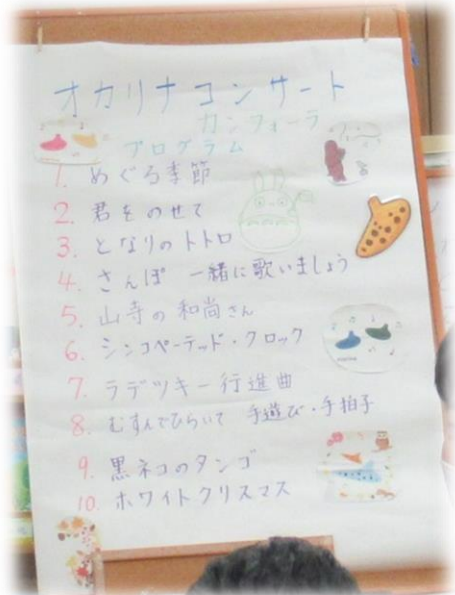 オカリナコンサート
カンフォーラ
プログラム
1. めぐる季節
2. 君をのせて
3. となりのトトロ
4. さんぽ 一緒に歌いましょう
5. 山寺の和尚さん
6. シンコペーテッド・クロック
7. ラデツキー行進曲
8. むすんでひらいて 手遊び・手拍子
9. 黒ネコのタンゴ
10. ホワイトクリスマス